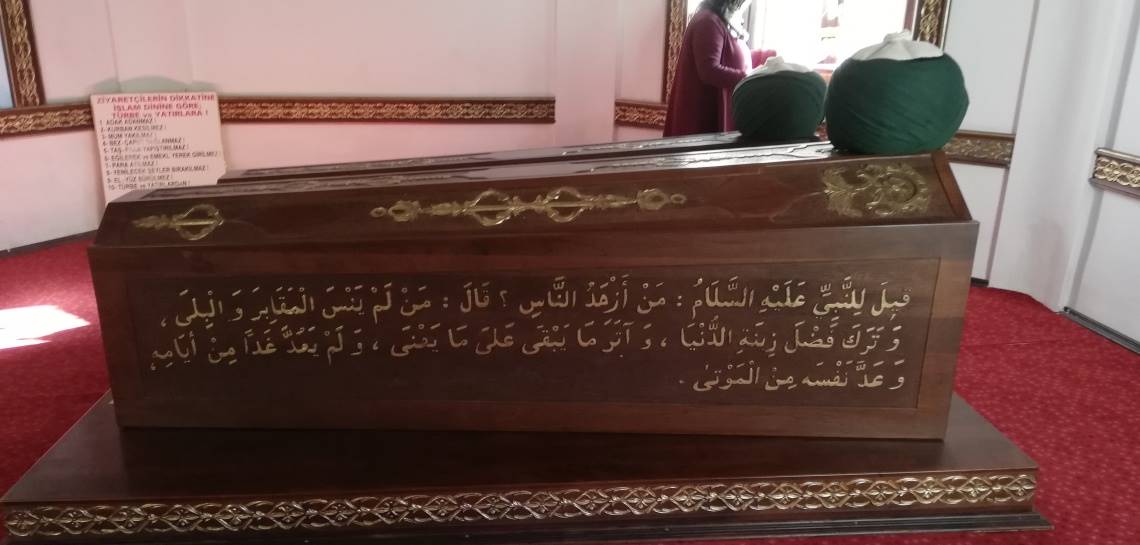 ZİYARETÇİLERİN DİKKATİNE
İSLAM DİNİNE GÖRE;
TÜRBE ve YATIRLARA !
1- ADAK ADANMAZ !
2- KURBAN KESİLMEZ !
3- MUM YAKILMAZ !
4- BEZ-ÇAPUT BAĞLANMAZ !
5- TAŞ-PARA YAPIŞTIRILMAZ !
6- EĞİLEREK ve EMEKL YEREK GİRİLMEZ !
7- PARA ATILMAZ !
8- YENİLECEK ŞEYLER BIRAKILMAZ !
9- EL -YÜZ SÜRÜLMEZ !
10- TÜRBE ve YATIRLARDAN !
قِيلَ لِلنَّبِيِّ عَلَيْهِ السَّلَامُ : مَنْ أَزْهَدُ النَّاسِ ؟ قَالَ : مَنْ لَمْ يَنْسَ الْمَقَابِرَ وَ الْبِلَى ،
وَ تَرَكَ فَضْلَ زِينَةِ الدُّنْيَا ، وَ آثَرَ مَا يَبْقَى عَلَى مَا يَفْنَى ، وَ لَمْ يَعُدَّ غَدًا مِنْ أَيَّامِهِ ،
وَ عَدَّ نَفْسَه مِنْ الْمَوْتىٰ .